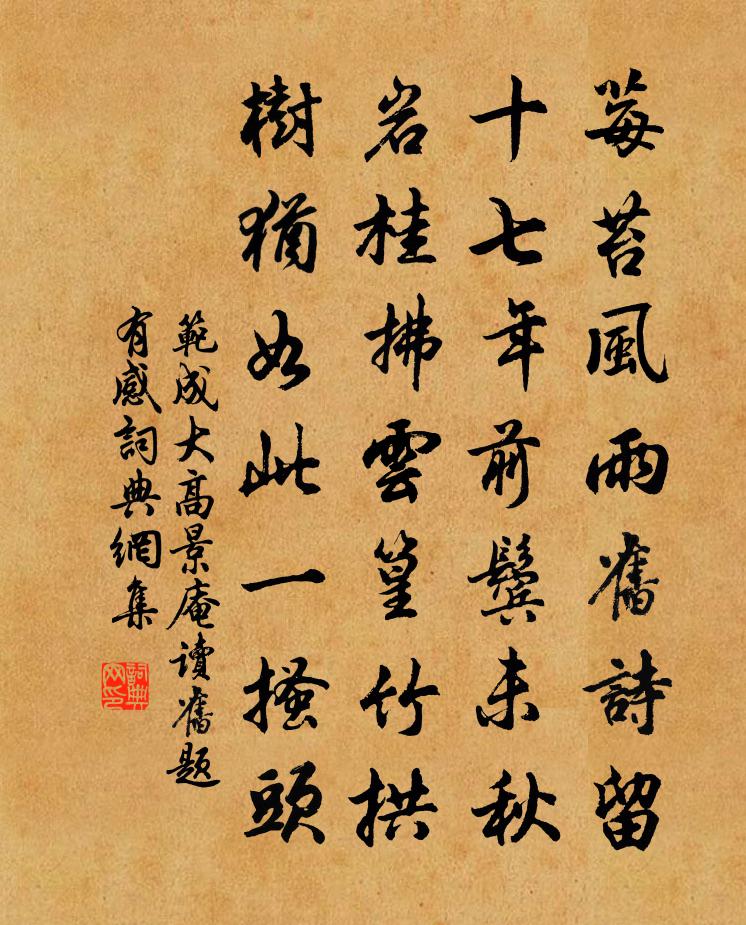 莓苔風雨舊詩留
十七年前鬓未秋
岩桂拂雲篁竹拱
樹猶如此一搔頭
範成大高景庵讀舊題
有感詞典網集
詞典网印